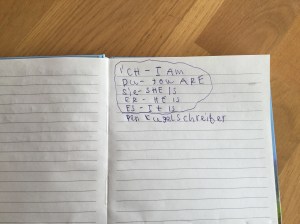 iCH - I AM
DU - YOU ARE
Sie - SHE IS
ER - HE IS
ES - It is
PEN Kugelschreiber